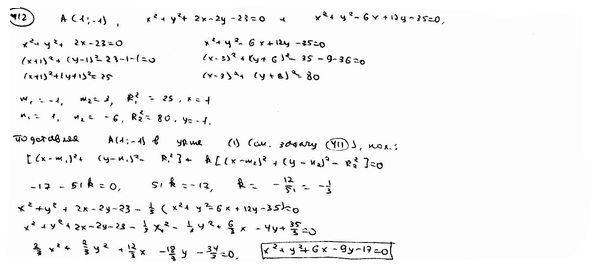 412 A (1;-1), x²+y²+2x-2y-23=0 и x²+y²-6x+12y-35=0,
x²+y²+2x-23=0 x²+y²-6x+12y-35=0
(x+1)²+(y-1)²-23-1-1=0 (x-3)²+(y+6)²-35-9-36=0
(x+1)²+(y+1)²=25 (x-3)²+(y+6)²=80
m₁=-1, m₂=3, R₁²=25, x=1
n₁=1, n₂=-6, R₂²=80, y=-1.
Подставляя A(1;-1) в ур-ие (1) (см. задачу 411), пол.:
[(x-m₁)²+(y-n₁)²-R₁²]+k[(x-m₂)²+(y-n₂)²-R₂²]=0
-17-51k=0, 51k=-17, k=-17/51=-1/3
x²+y²+2x-2y-23-1/3(x²+y²-6x+12y-35)=0
x²+y²+2x-2y-23-1/3x²-1/3y²+6/3x-4y+35/3=0
2/3x²+2/3y²+12/3x-18/3y-34/3=0, x²+y²+6x-9y-17=0